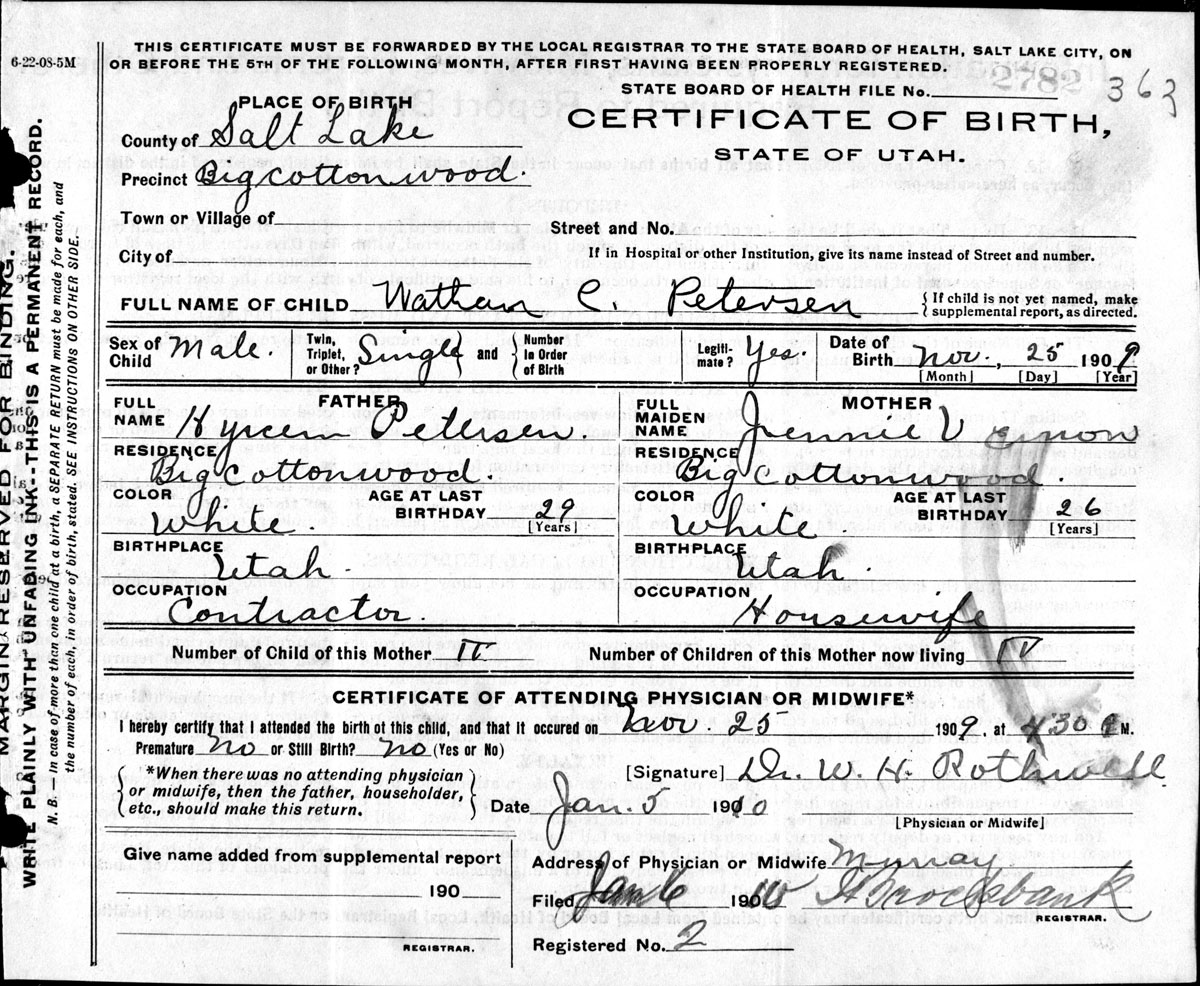 THIS CERTIFICATE MUST BE FORWARDED BY THE LOCAL REGISTRAR TO THE STATE BOARD OF HEALTH, SALT LAKE CITY, ON
6-22-08-5M
OR BEFORE THE 5TH OF THE FOLLOWING MONTH, AFTER FIRST HAVING BEEN PROPERLY REGISTERED.
STATE BOARD OF HEALTH FILE No. 2782 363
PLACE OF BIRTH
CERTIFICATE OF BIRTH,
County of Salt Lake
STATE OF UTAH.
Precinct Big Cottonwood.
Town or Village of
Street and No.
City of
If in Hospital or other Institution, give its name instead of Street and number.
FULL NAME OF CHILD Wathan C. Petersen { If child is not yet named, make
supplemental report, as directed.
Sex of Child Male. Twin, Triplet, or Other? Single and Number In Order of Birth Legiti-mate? Yes. Date of Birth Nov. 25 1909
[Month] [Day] [Year]
FATHER
FULL NAME Hyrcem Petersen.
RESIDENCE Big Cottonwood.
COLOR White. AGE AT LAST BIRTHDAY 29 [Years]
BIRTHPLACE Utah.
OCCUPATION Contractor.
MOTHER
FULL MAIDEN NAME Jennie V
RESIDENCE Big Cottonwood.
COLOR White AGE AT LAST BIRTHDAY 26 [Years]
BIRTHPLACE Utah.
OCCUPATION Housewife
Number of Child of this Mother IV Number of Children of this Mother now living IV
CERTIFICATE OF ATTENDING PHYSICIAN OR MIDWIFE*
I hereby certify that I attended the birth of this child, and that it occured on Nov. 25 1909, at 430 M.
Premature No or Still Birth? No (Yes or No)
*When there was no attending physician
or midwife, then the father, householder,
etc., should make this return.
[Signature] Dr. W. H. Rothwell
Date Jan. 5 1910
[Physician or Midwife]
Give name added from supplemental report
190
REGISTRAR.
Address of Physician or Midwife Murray
Filed Jan 6 1910 Brocksbank
REGISTRAR.
Registered No. 2
MARGIN RESERVED FOR BINDING.
WRITE PLAINLY WITH UNFADING INK--THIS IS A PERMANENT RECORD.
N. B.—In case of more than one child at a birth, a SEPARATE RETURN must be made for each, and
the number of each, in order of birth, stated. SEE INSTRUCTIONS ON OTHER SIDE.